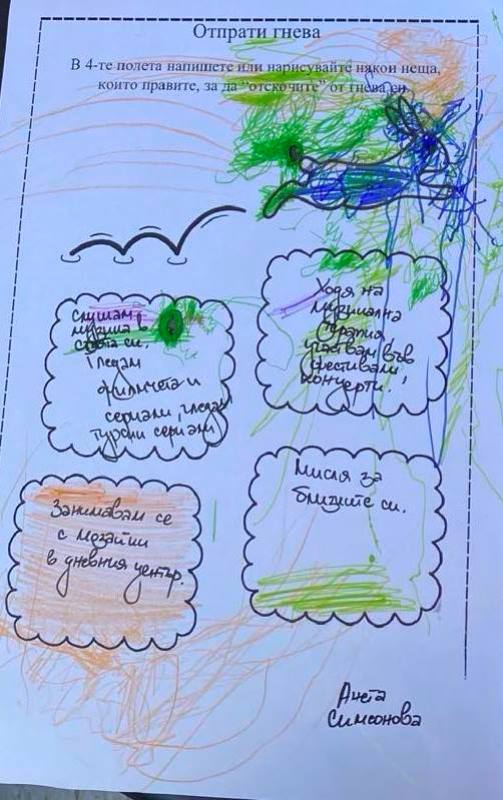 Отпрати гнева
В 4-те полета напишете или нарисувайте някои неща,
които правите, за да "отскочите" от гнева си.
Слушам
музика в
стаята си,
гледам
филмчета и
сериали, гледам
турски сериали
Ходя на
музикална
терапия
участвам във
фестивали
концерти!
Занимавам се
с мозайки
в дневния център.
Мисля за
близките си.
Анета
Симеонова